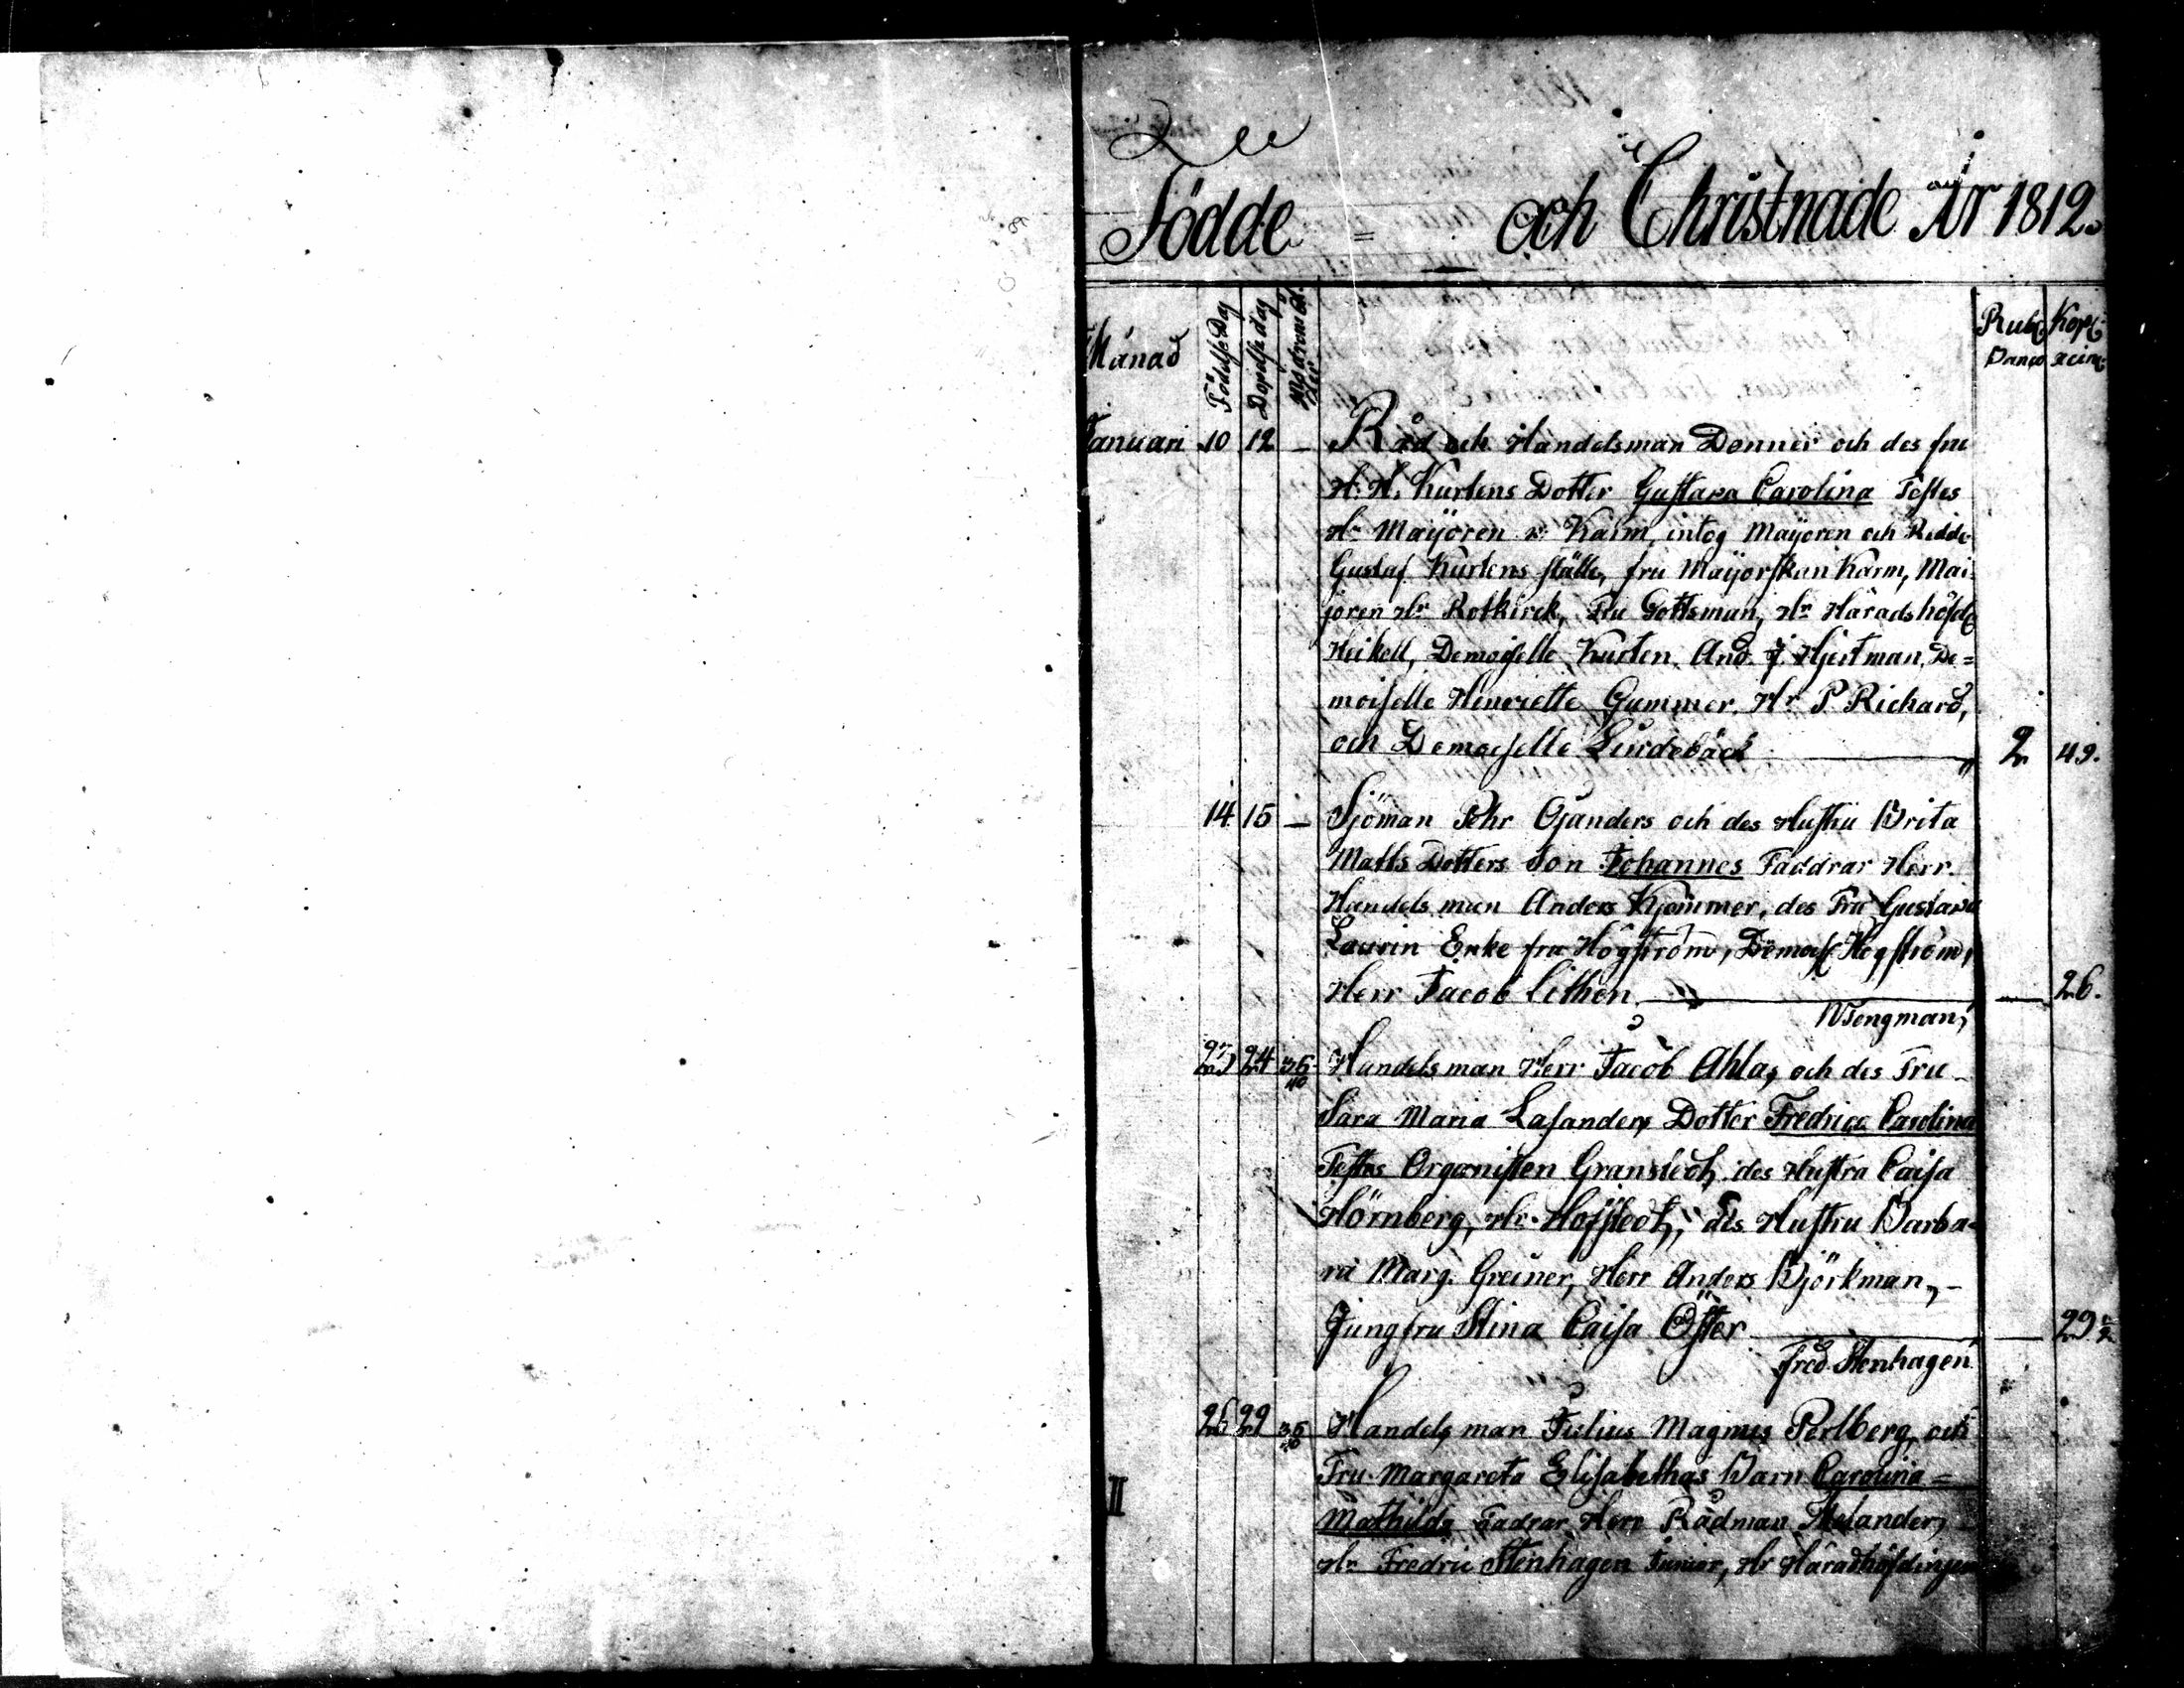 Födde = och Christnade År 1812.
Månad Födelse Dag Dopelse dag Modrans ål. Rub. Kop.
Januari 10 12 — Råd och Handelsman Donner och des fru
H. H. Kurtens Dotter Gustava Carolina Testes
Hr Maijoren v: Karm, intog Maijoren och Ridd.
Gustaf Kurtens ställe, fru Maijorskan Karm, Mai-
joren Hr Rotkirck, Fru Gottsman, Hr Häradshöfd.
Heikell, Demoiselle Kurten. And. J. Hjertman, De=
moiselle Henriette Gummer. Hr P. Richard,
och Demoiselle Lindebäck — 2 49.
14 15 — Sjöman Pehr Öjanders och des Hustru Brita
Matts Dotters Son Johannes Faddrar Herr.
Handels man Anders Kjemmer, des Fru Gustava
Laurin Enke fru Högström, Demois. Högström,
Herr Jacob Lithen — 26.
Wengman,
23 24 36/40 Handelsman Herr Jacob Ahla, och des Fru
Sara Maria Lasanders Dotter Fredrica Carolina
Testes Organisten Granstedt, des Hustru Caisa
Hörnberg, Hr. Hofstedt, des Hustru Barba=
ra Marg. Greiner, Herr Anders Björkman, —
Jungfru Stina Caisa Öster — 29
Fred. Stenhagen
26 29 36/40 Handels man Julius Magnus Perlberg, och
Fru Margareta Elisabethas Barn Carolina =
II Mathilda Fadrar Herr Rådman Melander,
Hr Fredric Stenhagen Junior, Hr Häradhöfdingen